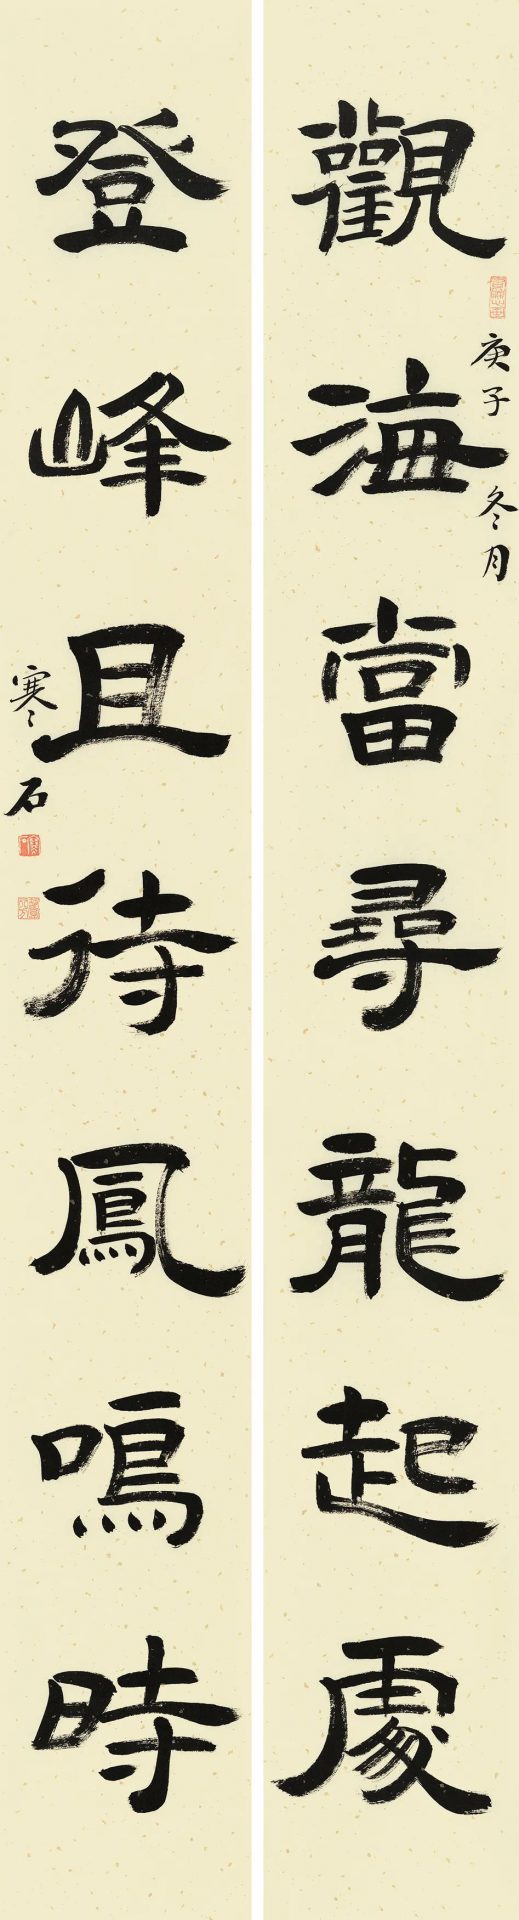 觀海當尋龍起處
庚子冬月
登峰且待鳳鳴時
寒石